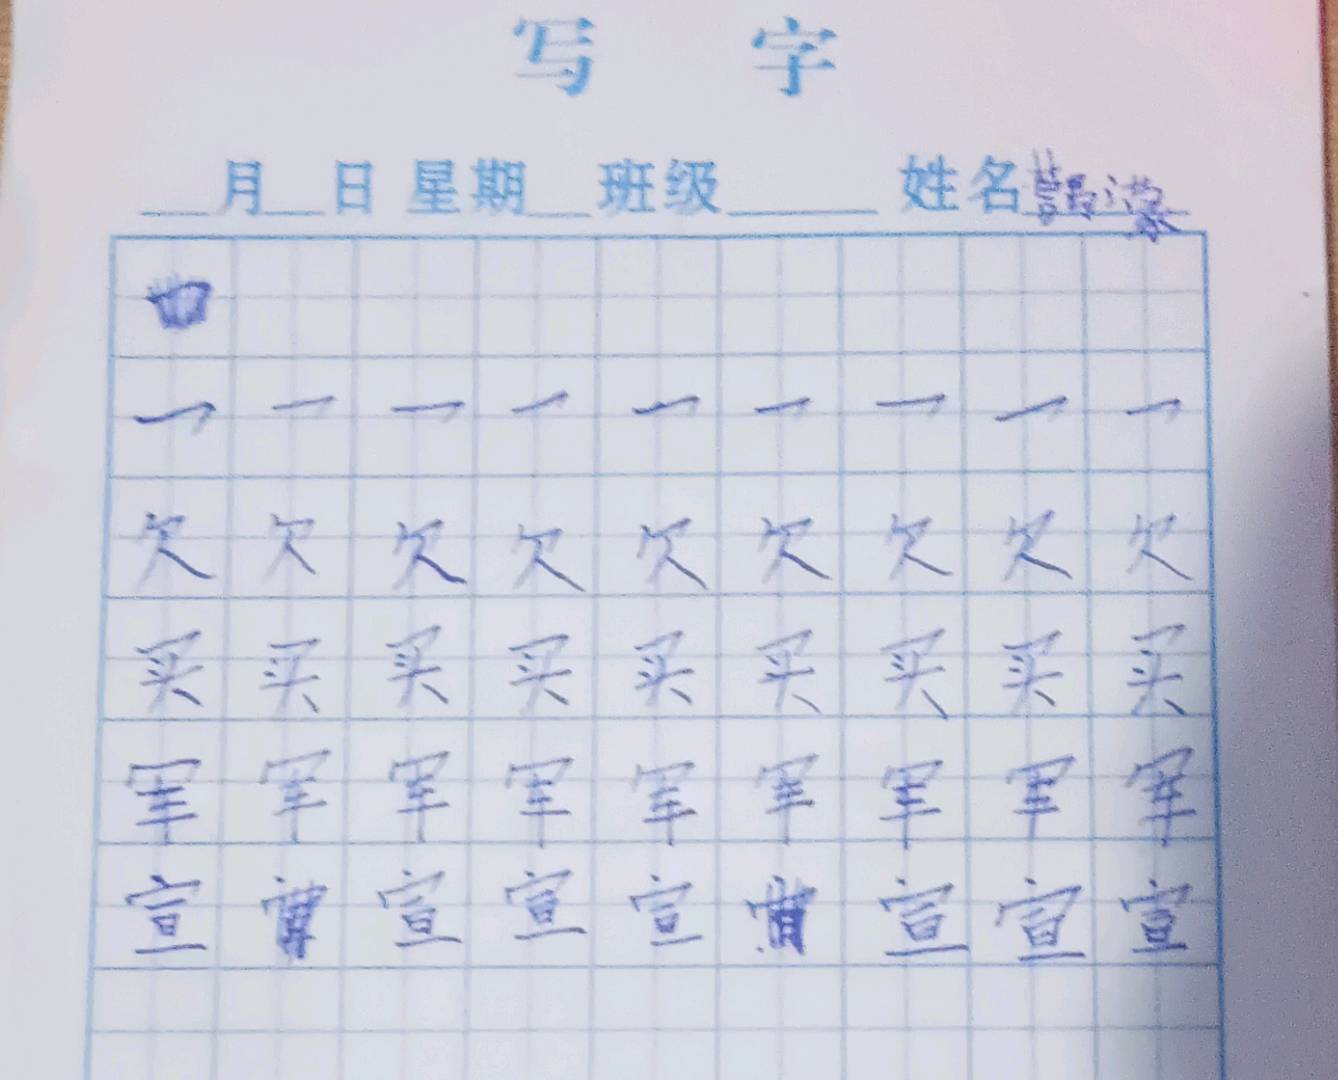 写 字
月 日 星期 班级 姓名
一 一 一 一 一 一 一 一 一
欠 欠 欠 欠 欠 欠 欠 欠 欠
买 买 买 买 买 买 买 买 买
军 军 军 军 军 军 军 军 军
宣 宣 宣 宣 宣 宣 宣